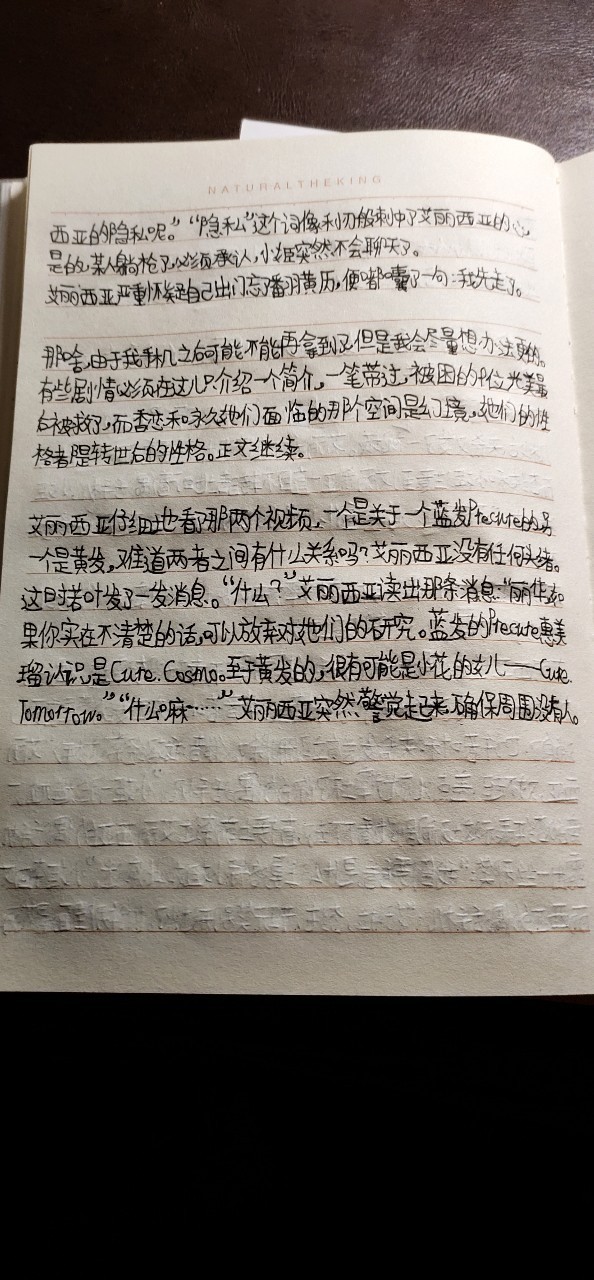 NATURALTHEKING
西亚的隐私呢。”“隐私”这个词像利刃般刺中了艾丽西亚的心,
是的,某人躺枪了,必须承认,小姬突然不会聊天了。
艾丽西亚严重怀疑自己出门忘了翻黄历,便嘟囔了一句:我先走了。
那啥,由于我手机之后可能不能再拿到了,但是我会尽量想办法更的。
有些剧情必须在这儿只介绍一个简介,一笔带过,被困的几位光美最
后被救了,而香恋和永久她们面临的那个空间是幻境,她们的性
格都是转世后的性格。正文继续。
艾丽西亚仔细地看了那两个视频,一个是关于一个蓝发Precure的另
一个是黄发,难道两者之间有什么关系吗?艾丽西亚没有任何头绪。
这时若叶发了一发消息。“什么?”艾丽西亚读出那条消息:“丽华,如
果你实在不清楚的话,可以放弃对她们的研究。蓝发的Precure惠美
瑠认识,是Cure.Cosmo。至于黄发的,很有可能是小花的女儿——Cure.
Tomorrow。”“什么麻……”艾丽西亚突然警觉起来,确保周围没有人。